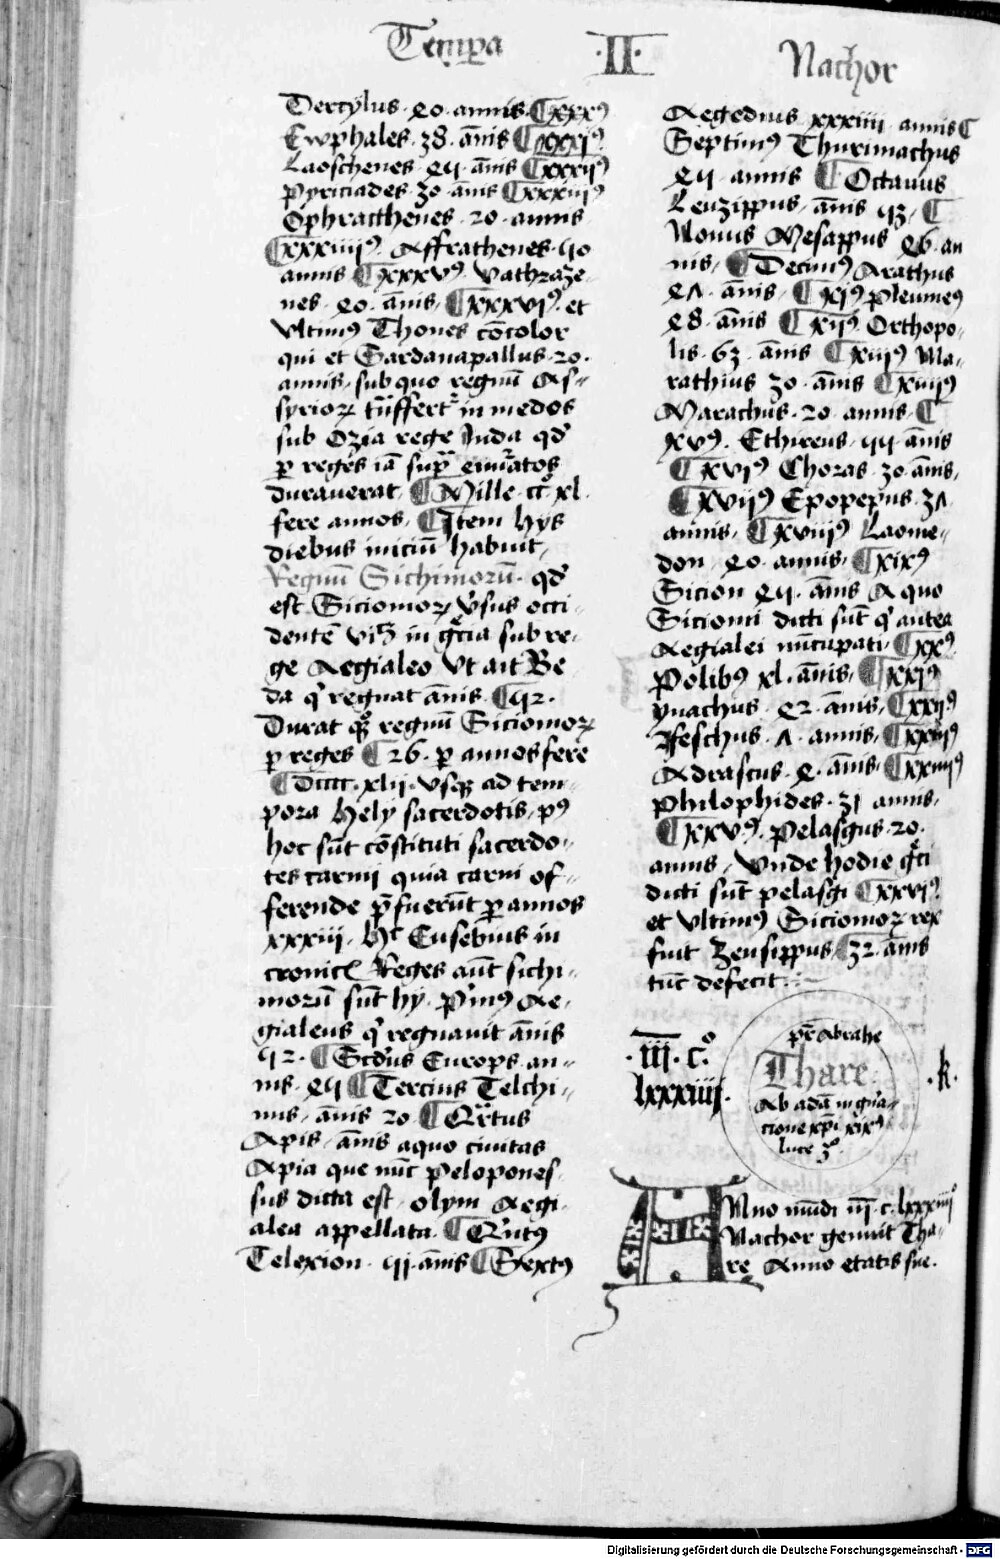 Tempa ·II· Nachor
Dercylus · 40 · annis · ¶ xxxꝰ
Ewphales · 38 · ānis ¶ xxxiꝰ
Laoschenes · 45 · ānis ¶ xxxiiꝰ
Pyriciades · 30 · ānis ¶ xxxiiiꝰ
Ophratthenes · 20 · annis
¶ xxxiiiiꝰ Affrathenes · 50
annis ¶ xxxvꝰ Vathraze-
nes · 40 · ānis, ¶ xxxviꝰ · et
Vltimꝰ Thones cōcolor
qui et Sardanapallus · 20 ·
annis, sub quo regnū As-
syrioꝝ tn̄sfert᷑ in medos
sub Ozia rege Juda qd̓
ꝑ reges iā sup̄ enūatos
durauerat, ¶ Mille cc xl
fere annos, ¶ Item hys
diebus iniciū habuit,
Regnū Sichimorū · qd̓
est Sicionioꝝ v̓sus occi-
dentē viꝫ in gͨcia sub re-
ge Aegialeo Vt ait Be
da qͥ regnat ānis ¶ 52 ·
Durat qͦꝫ regnū Sicionioꝝ
ꝑ reges ¶ 26 · ꝑ annos fere
¶ Dcccc · xlii · vsqꝫ ad tem-
pora Hely sacerdotis, pꝰ
hoc sūt cōstituti sacerdo-
tes carnij quia carni of-
ferende p̄fuerūt ꝑ annos
xxxiii · Hͨ Eusebius in
cronicꝭ Reges aūt sichi-
morū sūt hy · p̓mꝰ Ae-
gialeus qͥ regnauit ānis
52 · ¶ Scd̓us Europs · an-
nis · 45 ¶ Tercius Telchi-
nus, ānis 20 ¶ Qͣrtus
Apis · ānis aquo ciuitas
Apia que nūc pelopones
sus dicta est · olym Aegi
alea appellata · ¶ Qͥntꝰ
Telexion · 55 · ānis ¶ Sextꝰ
Aegedius xxxiiii annis ¶
Septimꝰ Thurimachus
45 · annis ¶ Octauus
Leuzippus · ānis 53, ¶
Nonus Mesappus 46 · an
nis, ¶ Decimꝰ Arathus
47 · ānis, ¶ xiꝰ pleumeꝰ
48 · ānis ¶ xiiꝰ Orthopo-
lis · 63 · ānis ¶ xiiiꝰ Ma-
rathius 30 · ānis ¶ xiiiiꝰ
Marachus · 20 · annis · ¶
xvꝰ · Ethireus · 55 · ānis
¶ xviꝰ Choras · 30 · ānis,
¶ xviiꝰ Epopepus · 37
annis, ¶ xviiiꝰ Laome-
don · 40 · annis, ¶ xixꝰ
Sicion 45 · ānis A quo
Sicionii dicti sūt qͥ antea
Aegialei nūcupati, ¶ xxꝰ
Polibꝰ xl · ānis, ¶ xxiꝰ
ynachus · 42 · ānis, ¶ xxiiꝰ
Feschus · 7 · annis, ¶ xxiiiꝰ
Adrascus · 4 · ānis, ¶ xxiiiiꝰ
Philophides · 31 annis,
¶ xxvꝰ · Pelasgus · 20 ·
annis, Vnde hodie gͨci
dicti sūt pelasgi ¶ xxviꝰ
et Vltimꝰ Sicionioꝝ rex
fuit Zeusippus, 32 · ānis
tūc defecit ·
· iii · cͦ
lxxxiiii ·
pr̄ Abrahe
Thare ·
Ab adā in gn̄a-
cione xp̄i xixꝰ
luce 3ͦ
· k ·
Anno mūdi iii · c · lxxxiiii
Nachor genuit Tha-
re Anno etatis sue ·
xxix
Digitalisierung gefördert durch die Deutsche Forschungsgemeinschaft - DFG